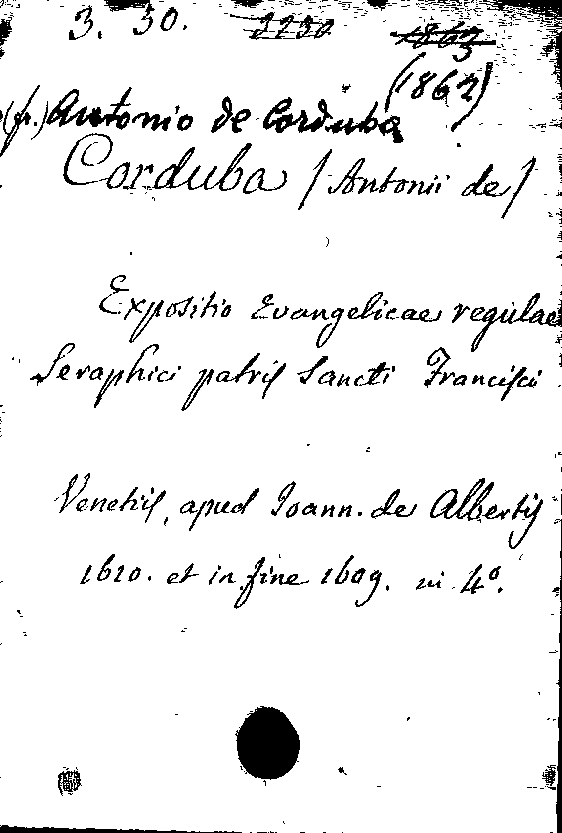 3. 30. 3230 1863
(1862)
(fr.) Antonio de Corduba
Corduba / Antonii de /
Expositio Evangelicae regulae
Seraphici patris Sancti Francisci
Venetiis, apud Joann. de Albertis
1610. et in fine 1609. in 4º.